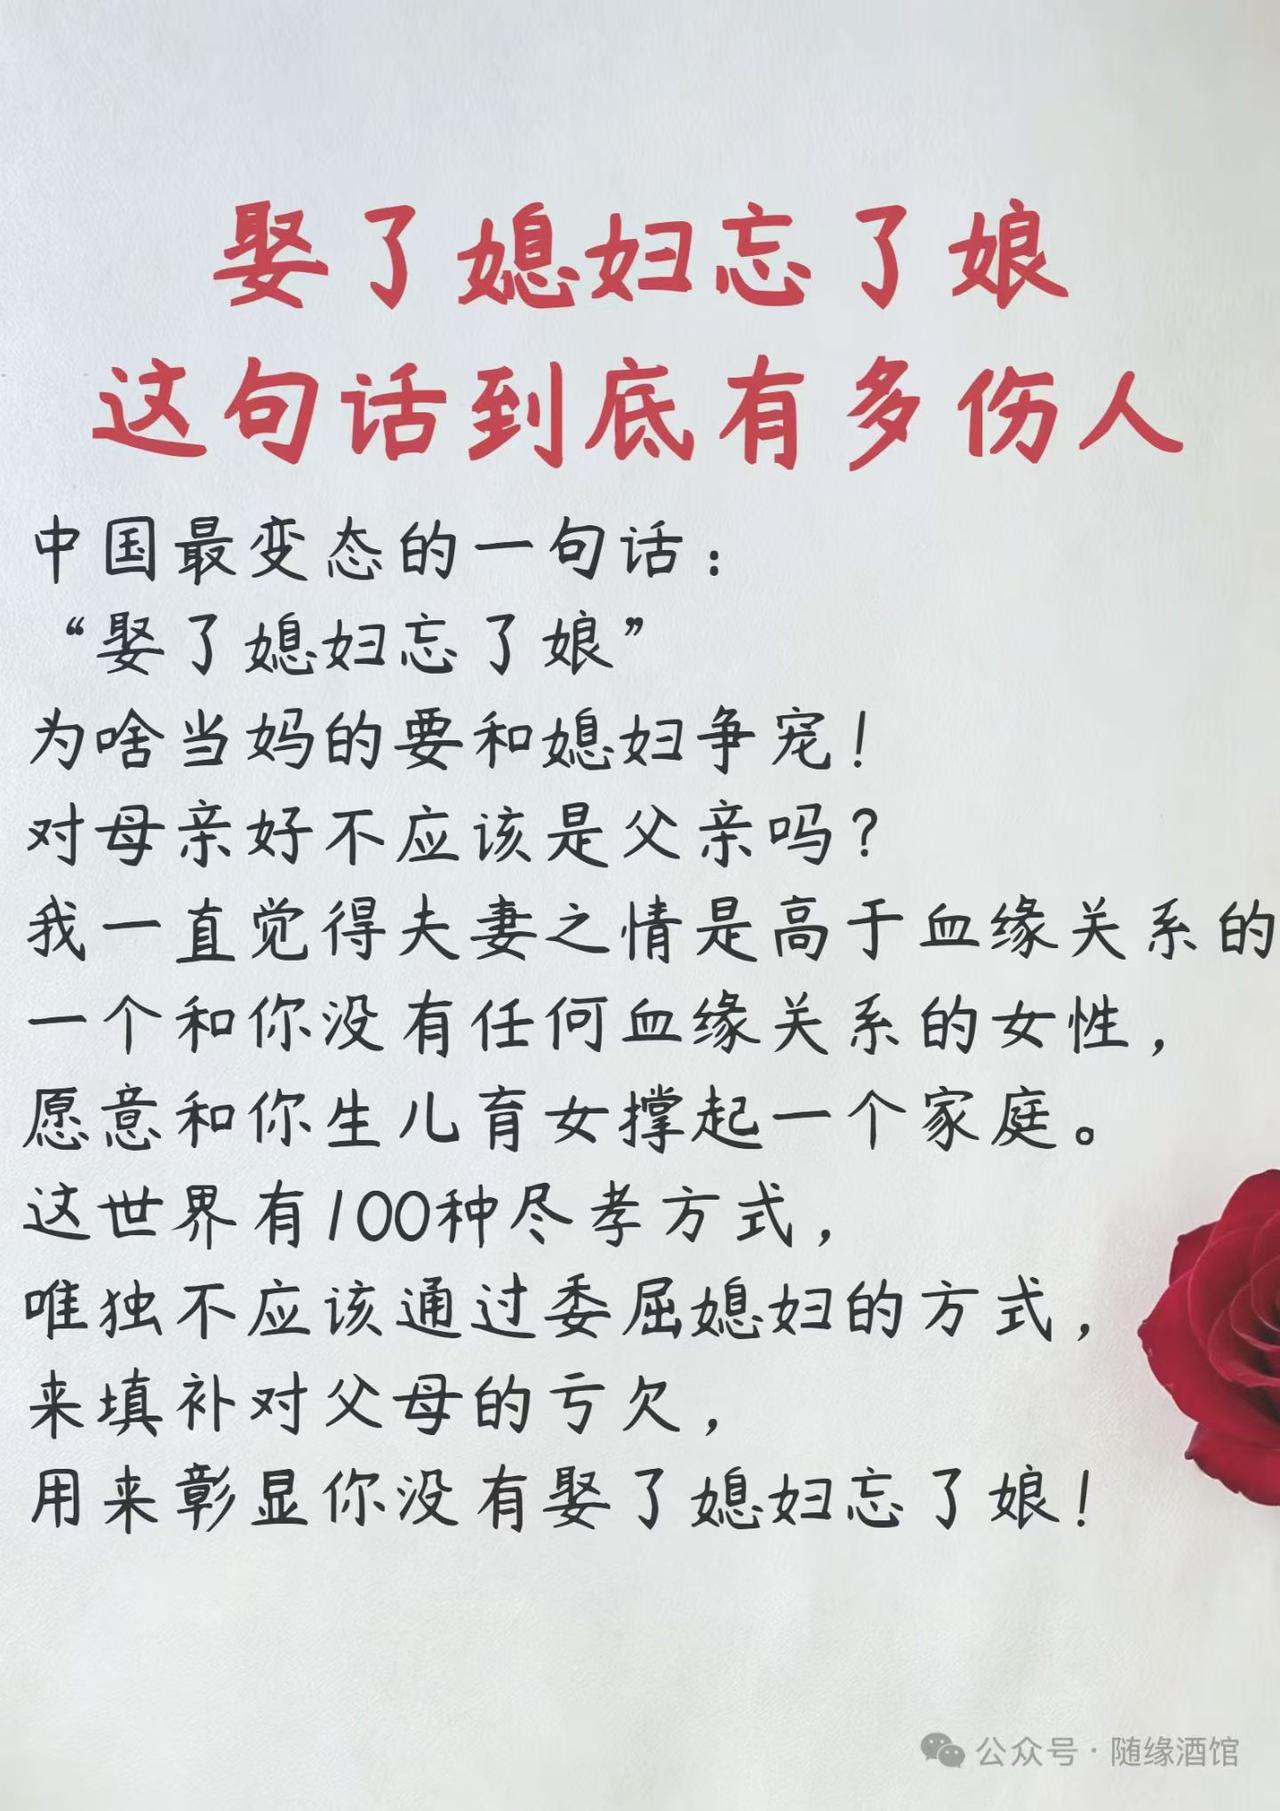 娶了媳妇忘了娘
这句话到底有多伤人
中国最变态的一句话：
“娶了媳妇忘了娘”
为啥当妈的要和媳妇争宠！
对母亲好不应该是父亲吗？
我一直觉得夫妻之情是高于血缘关系的
一个和你没有任何血缘关系的女性，
愿意和你生儿育女撑起一个家庭。
这世界有100种尽孝方式，
唯独不应该通过委屈媳妇的方式，
来填补对父母的亏欠，
用来彰显你没有娶了媳妇忘了娘！
公众号·随缘酒馆